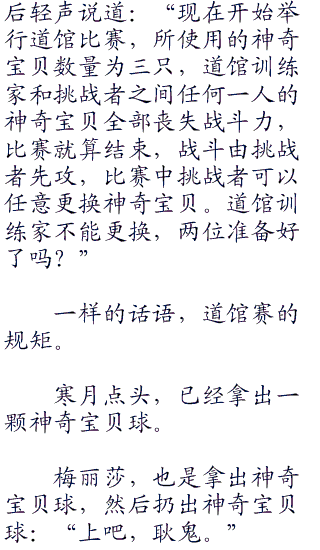 后轻声说道：“现在开始举
行道馆比赛，所使用的神奇
宝贝数量为三只，道馆训练
家和挑战者之间任何一人的
神奇宝贝全部丧失战斗力，
比赛就算结束，战斗由挑战
者先攻，比赛中挑战者可以
任意更换神奇宝贝。道馆训
练家不能更换，两位准备好
了吗？”
一样的话语，道馆赛的
规矩。
寒月点头，已经拿出一
颗神奇宝贝球。
梅丽莎，也是拿出神奇
宝贝球，然后扔出神奇宝贝
球：“上吧，耿鬼。”